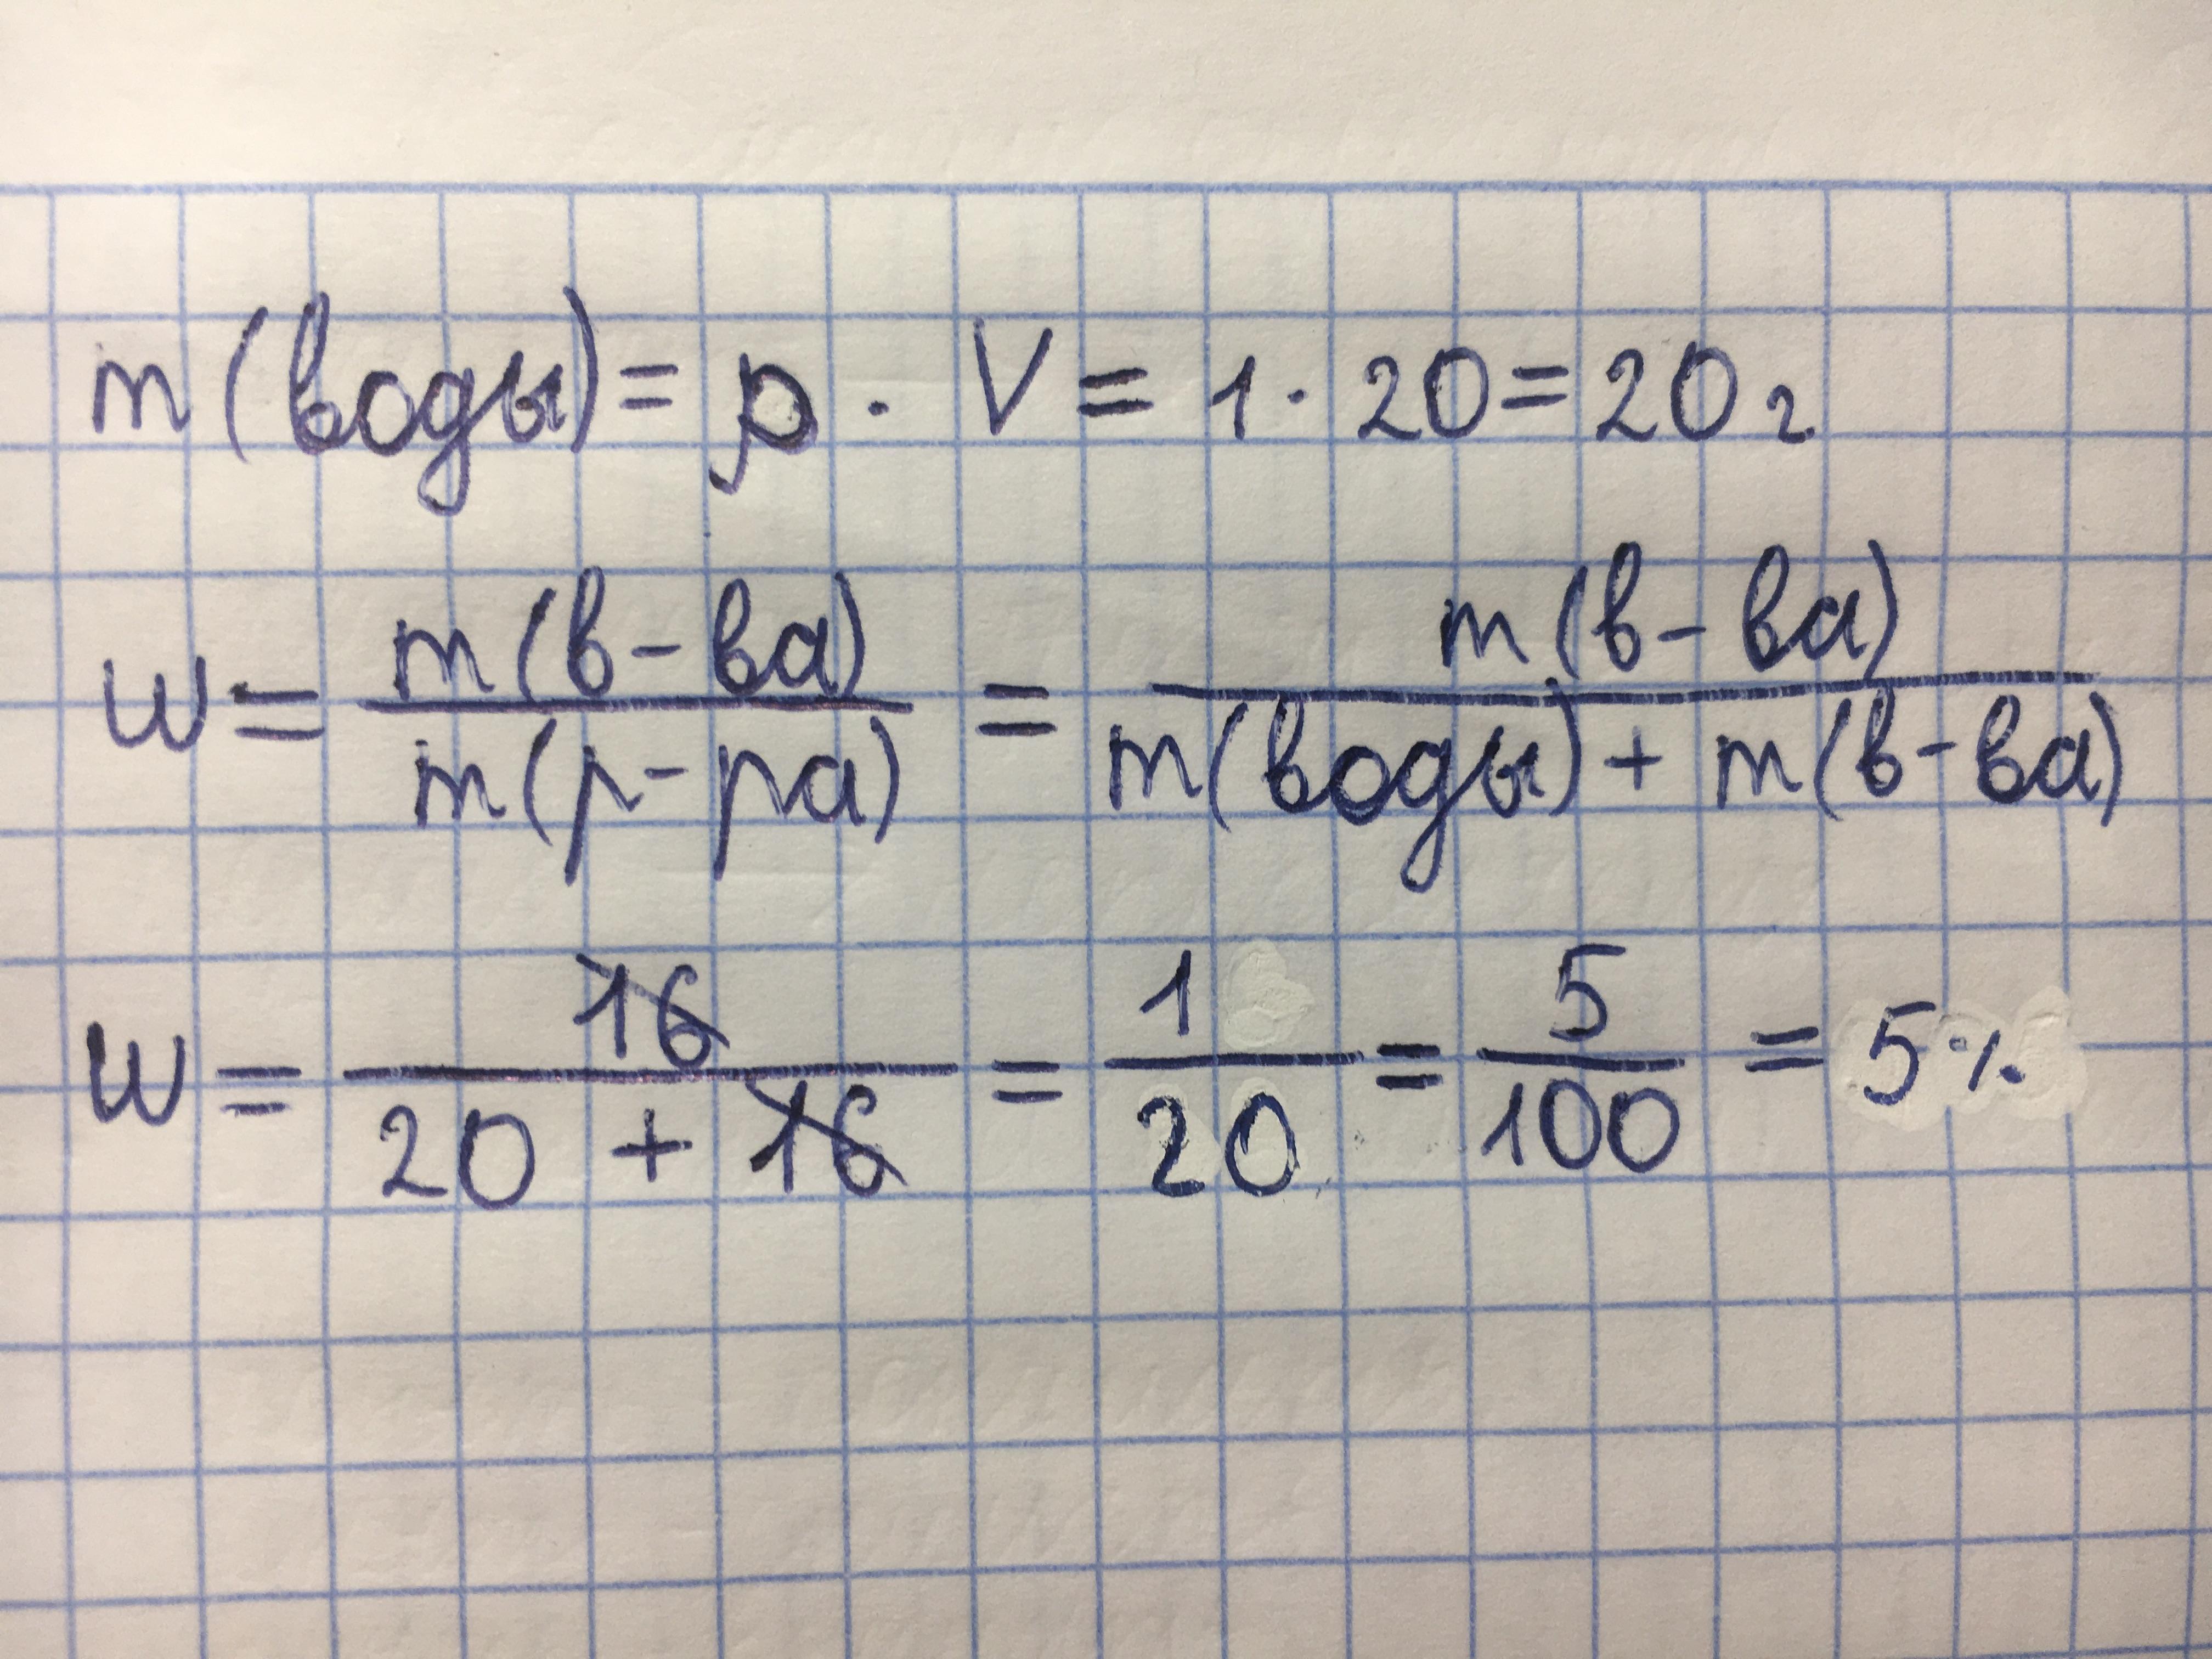 m(воды) = ρ · V = 1 · 20 = 20 г
w = m(в-ва) / m(р-ра) = m(в-ва) / m(воды) + m(в-ва)
w = 16 / 20 + 16 = 1 / 20 = 5 / 100 = 5%